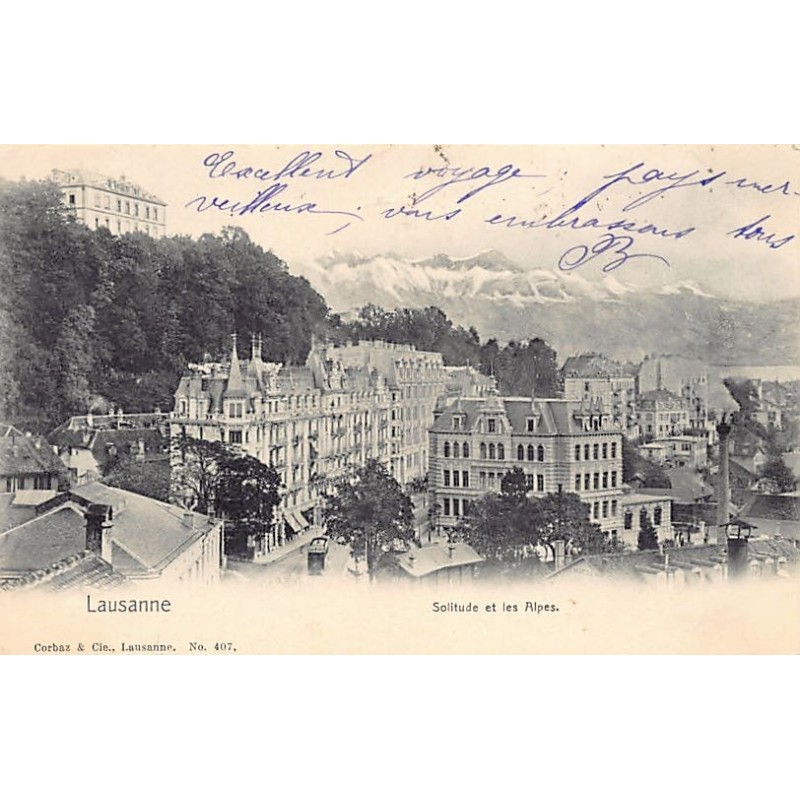 Excellent voyage, pays mer-
veilleux; vous embrassons tous
B
Lausanne
Solitude et les Alpes.
Corbaz & Cie., Lausanne. No. 407.